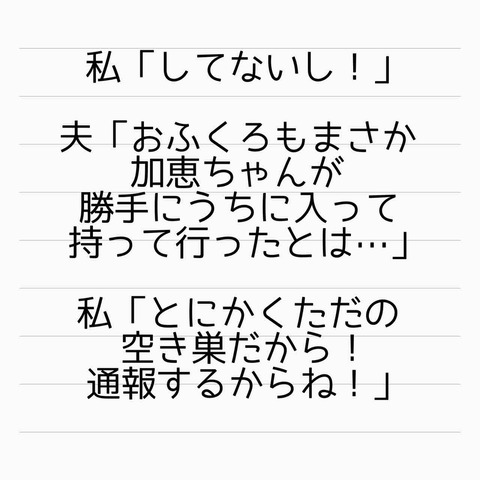 私「してないし！」
夫「おふくろもまさか
加恵ちゃんが
勝手にうちに入って
持って行ったとは…」
私「とにかくただの
空き巣だから！
通報するからね！」